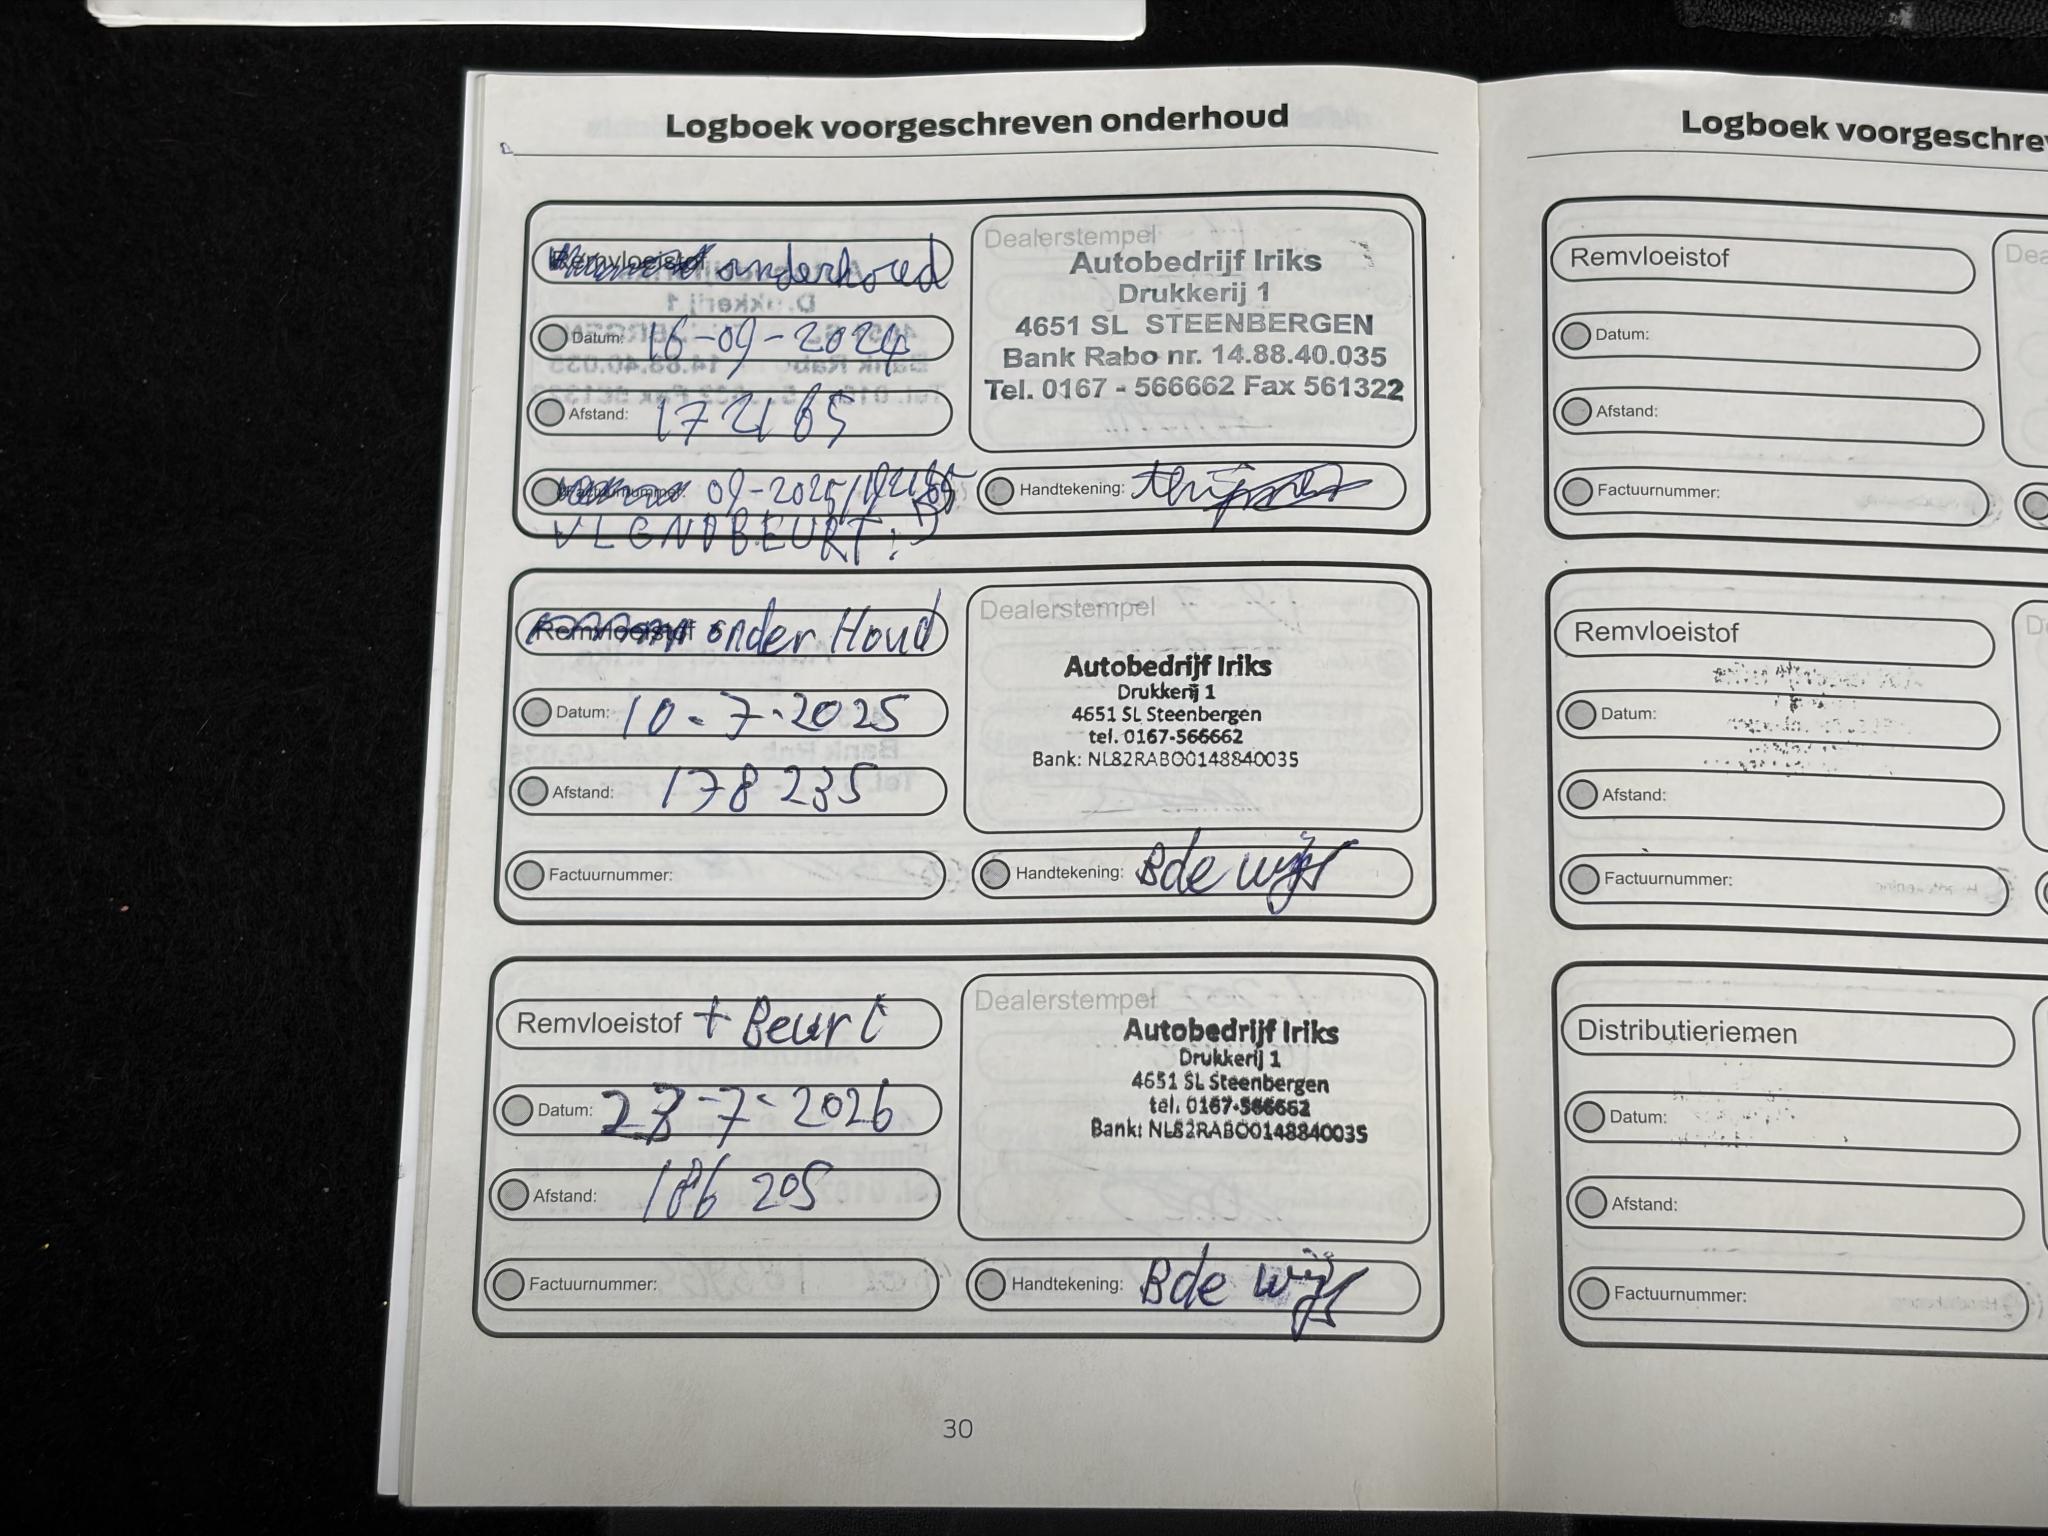 Logboek voorgeschreven onderhoud
Remvloeistof onderhoud
Dealerstempel
Autobedrijf Iriks
Drukkerij 1
4651 SL STEENBERGEN
Bank Rabo nr. 14.88.40.035
Tel. 0167 - 566662 Fax 561322
Datum: 16-09-2024
Afstand: 172165
Factuurnummer: 09-2025/
Handtekening:
VLGNDBEURT:
Remvloeistof onderHoud
Dealerstempel
Autobedrijf Iriks
Drukkerij 1
4651 SL Steenbergen
tel. 0167-566662
Bank: NL82RABO0148840035
Datum: 10-7-2025
Afstand: 178235
Factuurnummer:
Handtekening: Bde wijs
Remvloeistof + Beurt
Dealerstempel
Autobedrijf Iriks
Drukkerij 1
4651 SL Steenbergen
tel. 0167-566662
Bank: NL82RABO0148840035
Datum: 23-7-2026
Afstand: 186205
Factuurnummer:
Handtekening: Bde wijs
30
Logboek voorgeschre
Remvloeistof
Dea
Datum:
Afstand:
Factuurnummer:
Remvloeistof
D
Datum:
Afstand:
Factuurnummer:
Distributieriemen
Datum:
Afstand:
Factuurnummer: